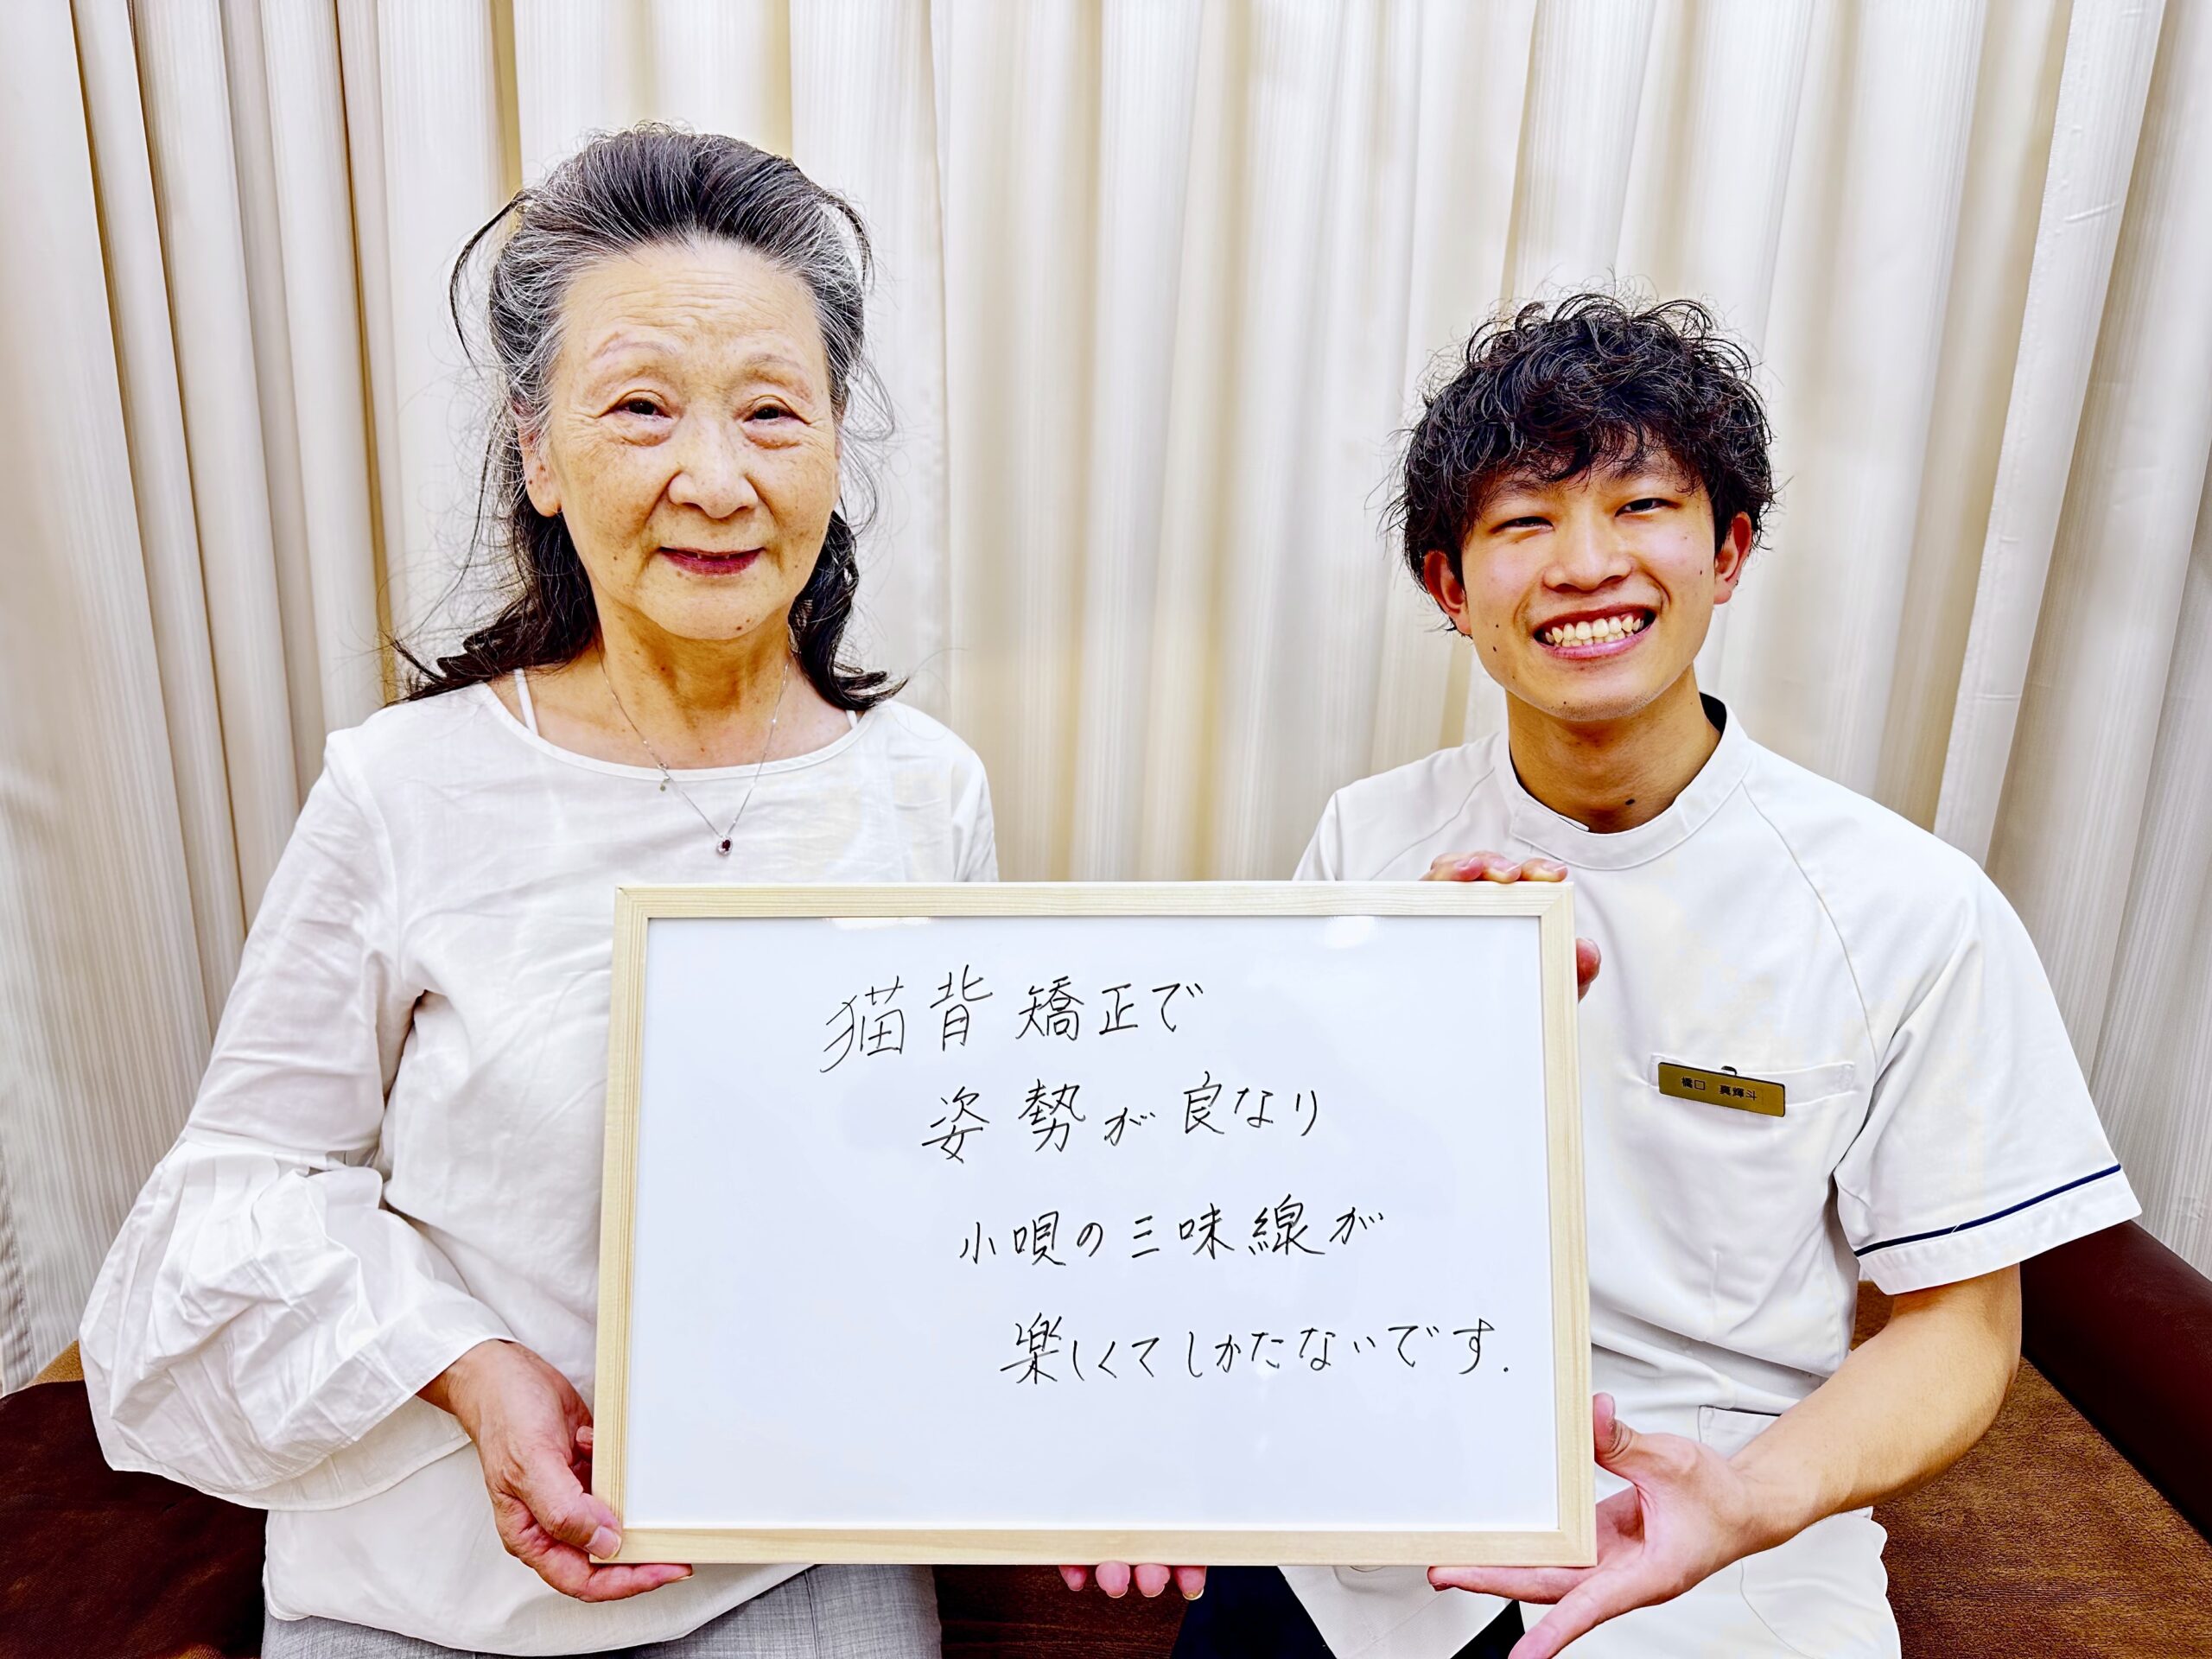 猫背矯正で
姿勢が良なり
小唄の三味線が
楽しくてしかたないです.
橋口 真輝斗